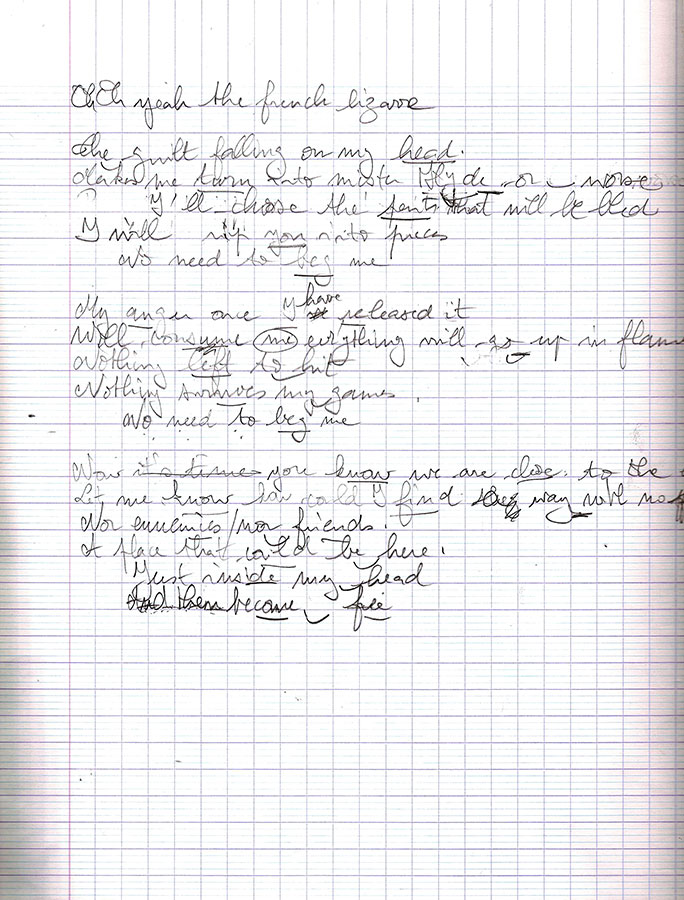 Oh Oh yeah the french lizarre
The guilt falling on my head.
Makes me turn into mister Hyde or worse
I'll choose the that will be bled
I will rip you into pieces
No need to beg me
My anger once I have released it
Will consume me everything will go up in flam
Nothing left to hit
Nothing survives my games.
No need to beg me
Now it's time you know we are close to the
Let me know how could I find way with no
Nor ennemies/nor friends.
A place that could be here.
Just inside my head
And then become